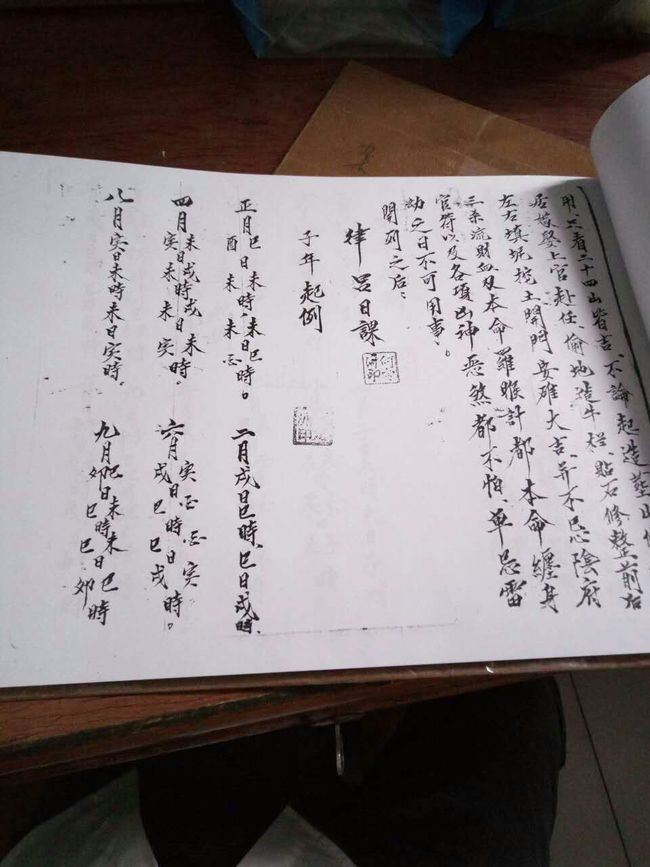 用、只看二十四山皆吉、不論起造塟山
居嫁娶上官赴任、偷地造牛栏、貼石修整前后
左右填坭挖土開門安碓大吉、并不忌陰府
三杀流財血刃本命羅睺計都本命纏身
官符以及各項凶神惡煞都不怕、单忌雷
劫之日不可用事。
開列之后：
律呂日課
子年起例
正月巳酉日未未時、未未日巳酉時。
二月戌日巳時、巳日戌時、
四月未寅日戌未時戌未日未寅時。
六月寅戌日酉巳時酉巳日寅戌時。
八月寅日未時未日寅時。
九月巳卯日未巳時未巳日巳卯時